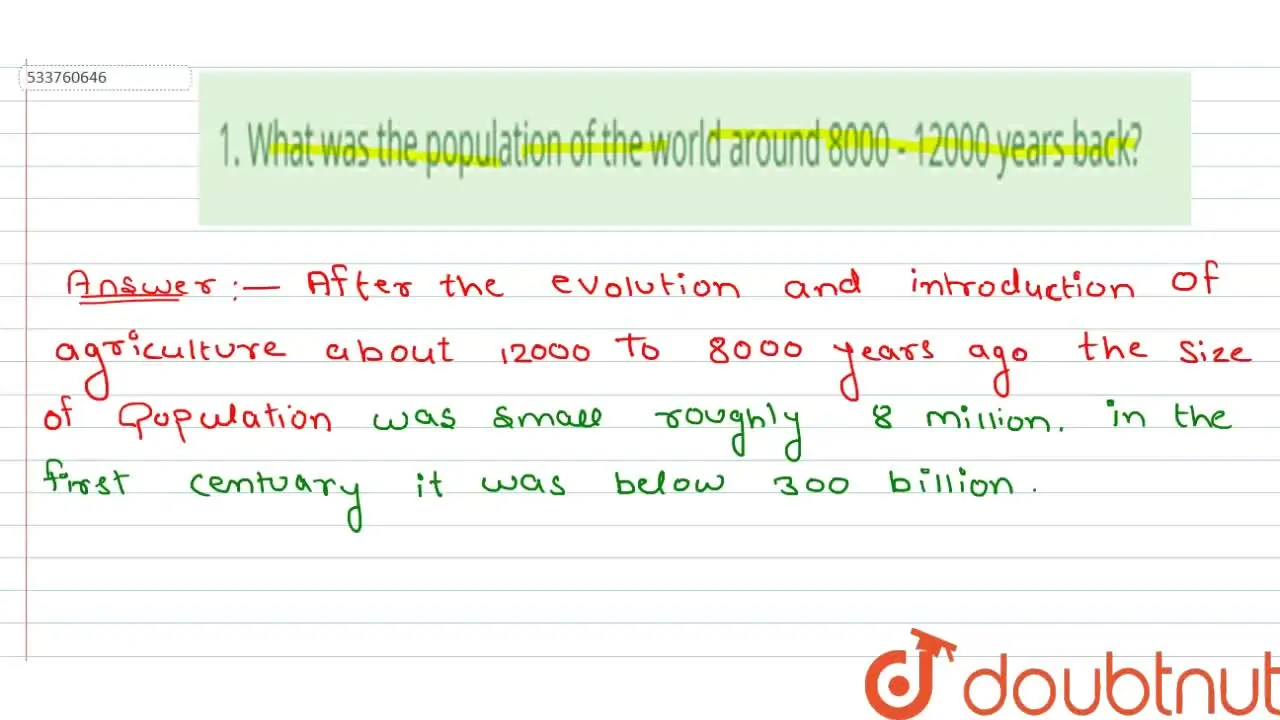 533760646
1. What was the population of the world around 8000 - 12000 years back?
Answer :— After the evolution and introduction of
agriculture about 12000 To 8000 years ago the size
of Population was small roughly 8 million. in the
first centuary it was below 300 billion.
doubtnut